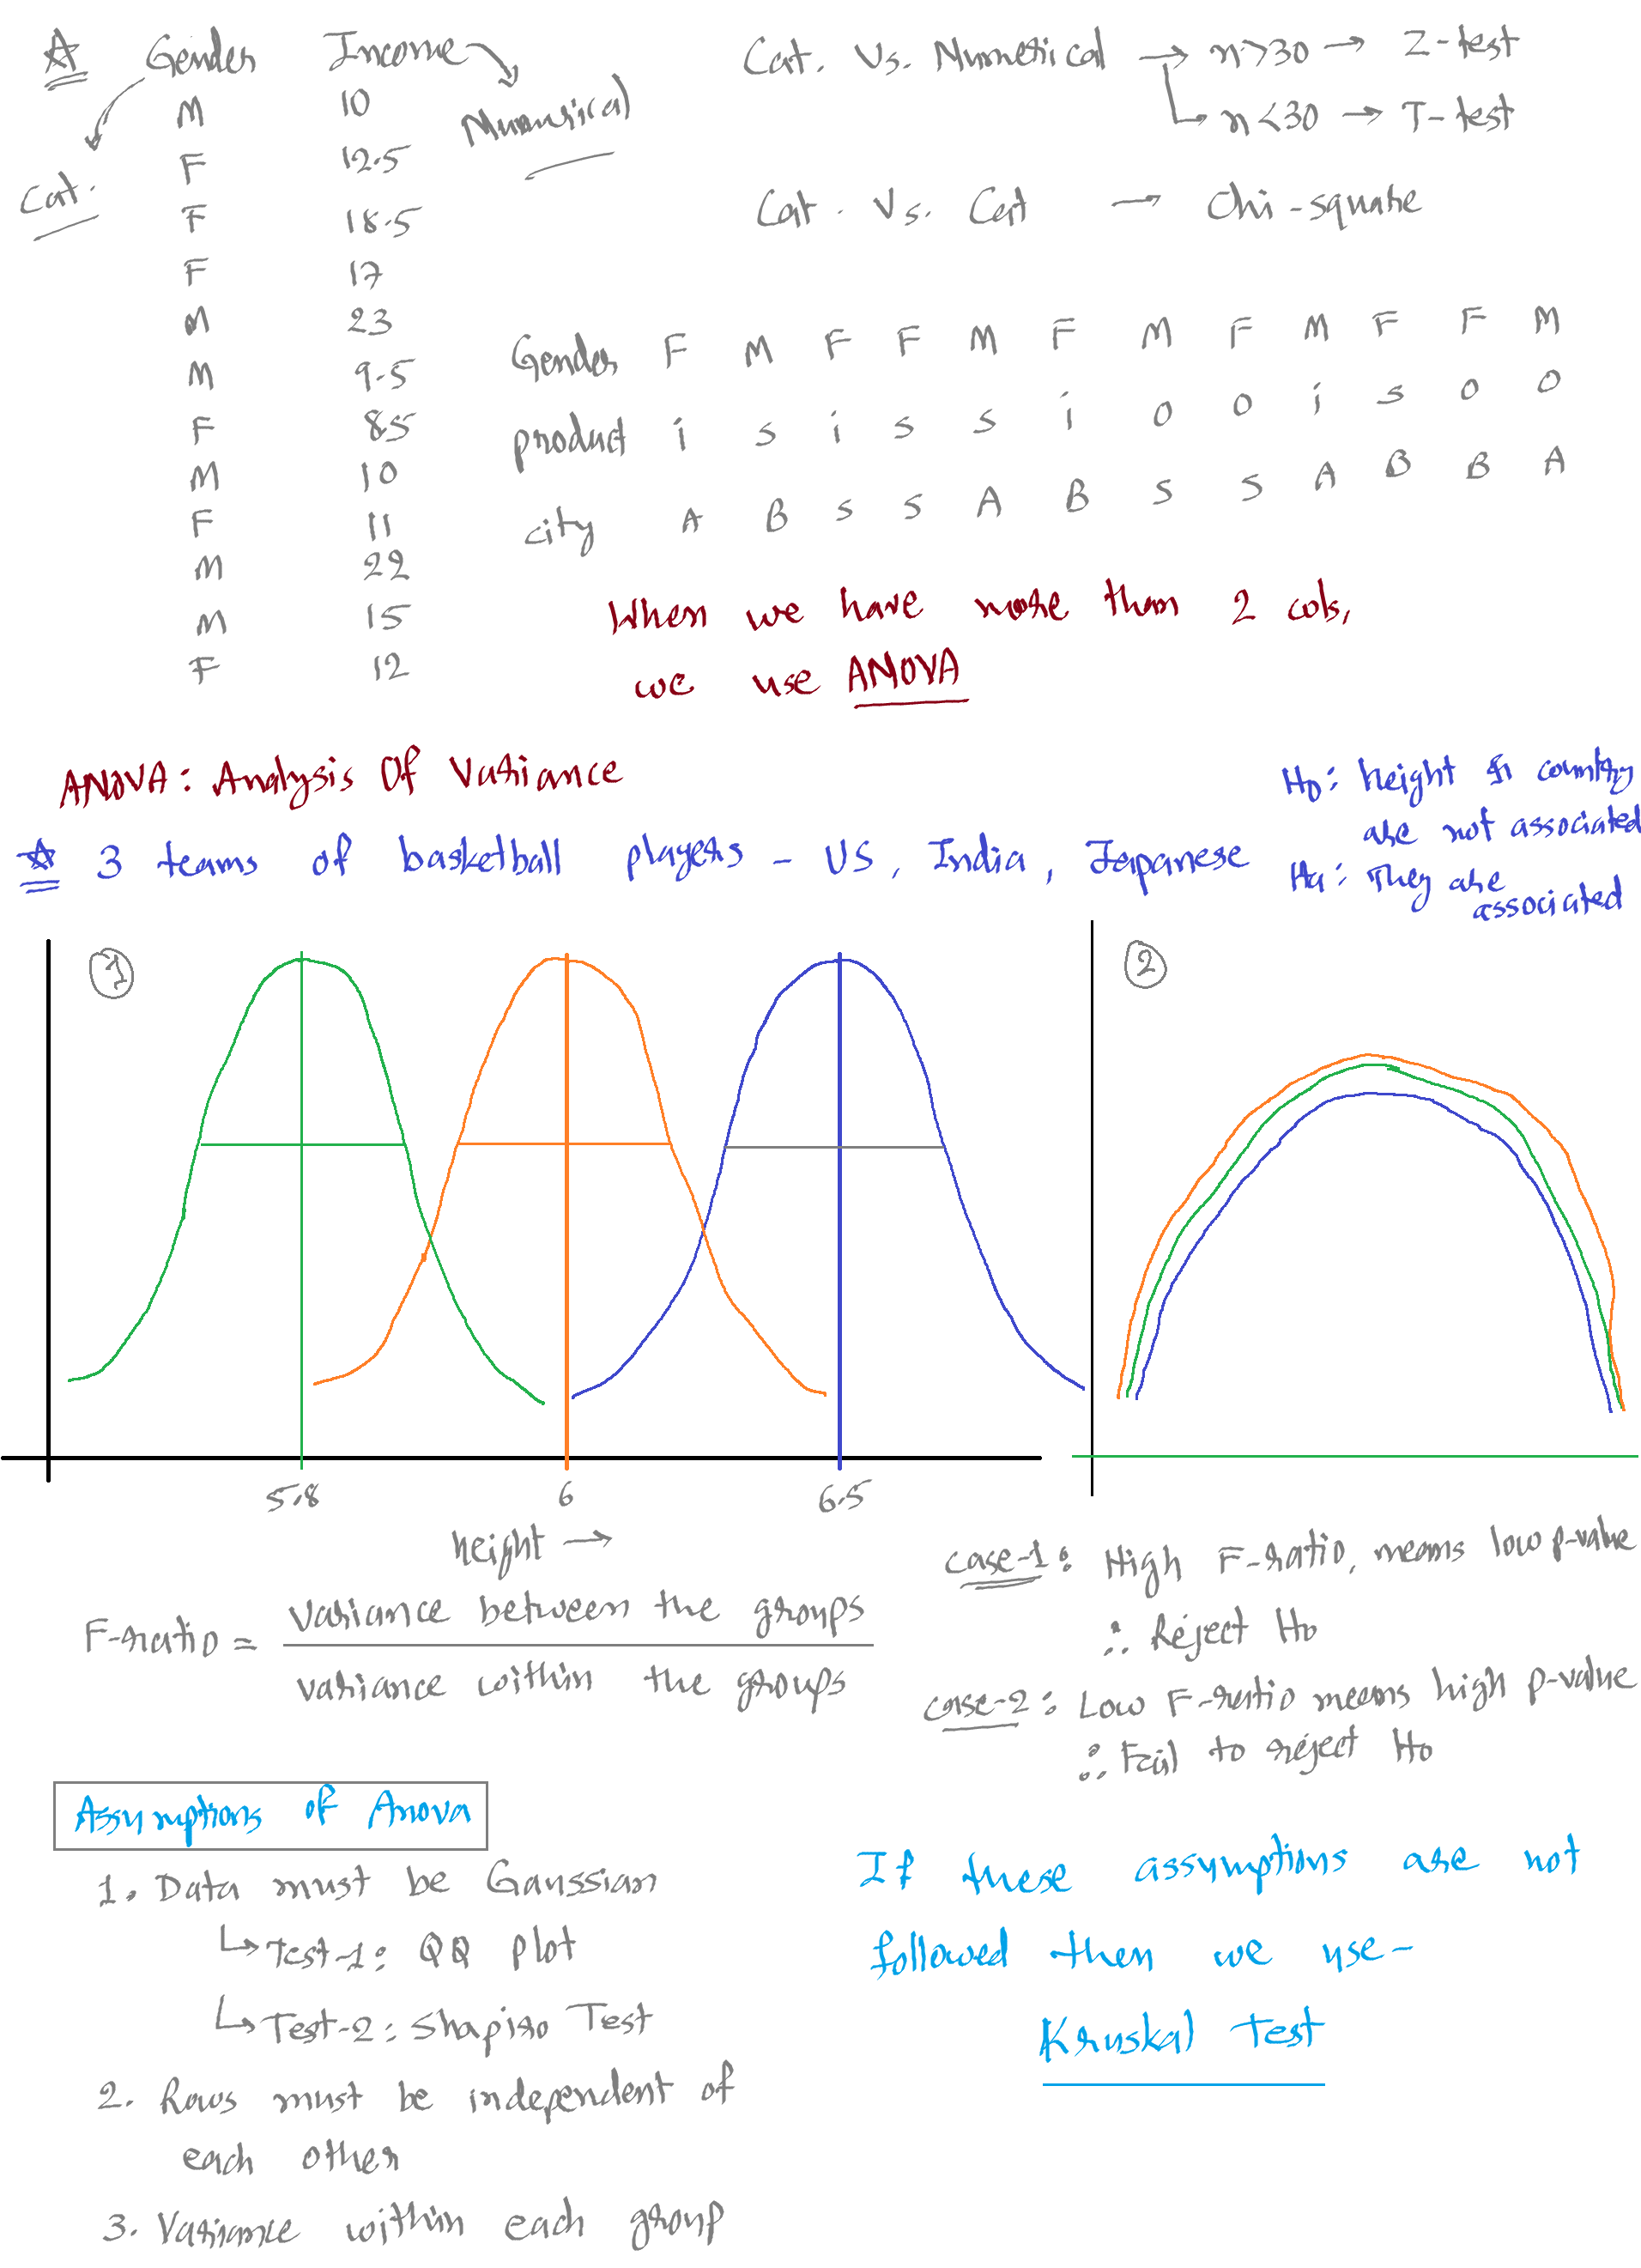 Gender Income
Cat. Numerical
M 10
F 12.5
F 18.5
F 17
M 23
M 9.5
F 8.5
M 10
F 11
M 22
M 15
F 12
Cat. Vs. Numerical → n>30 → Z-test
↳ n<30 → T-test
Cat. Vs. Cat → Chi-square
Gender F M F F M F M F M F F M
product i s i s s i o o i s o o
city A B S S A B S S A B B A
When we have more than 2 cols,
we use ANOVA
ANOVA: Analysis Of Variance
3 teams of basketball players - US, India, Japanese
H0: height & country
are not associated
Ha: They are
associated
1
2
5.8 6 6.5
height →
F-ratio = variance between the groups
variance within the groups
case-1: High F-ratio, means low p-value
∴ Reject H0
case-2: Low F-ratio means high p-value
∴ Fail to reject H0
Assumptions of Anova
1. Data must be Gaussian
↳ Test-1: QQ plot
↳ Test-2: Shapiro Test
2. Rows must be independent of
each other
3. Variance within each group
If these assumptions are not
followed then we use-
Kruskal Test